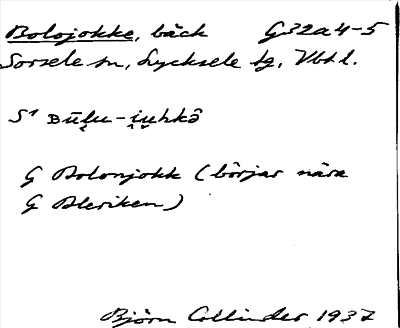 Bolojokke, bäck G32a4-5
Sorsele sn, Lycksele tg, Vbtl.
S¹ Būl̯u-i̯u̯hkô
G Bolonjokk (börjar nära
G Bleriken)
Björn Collinder 1937